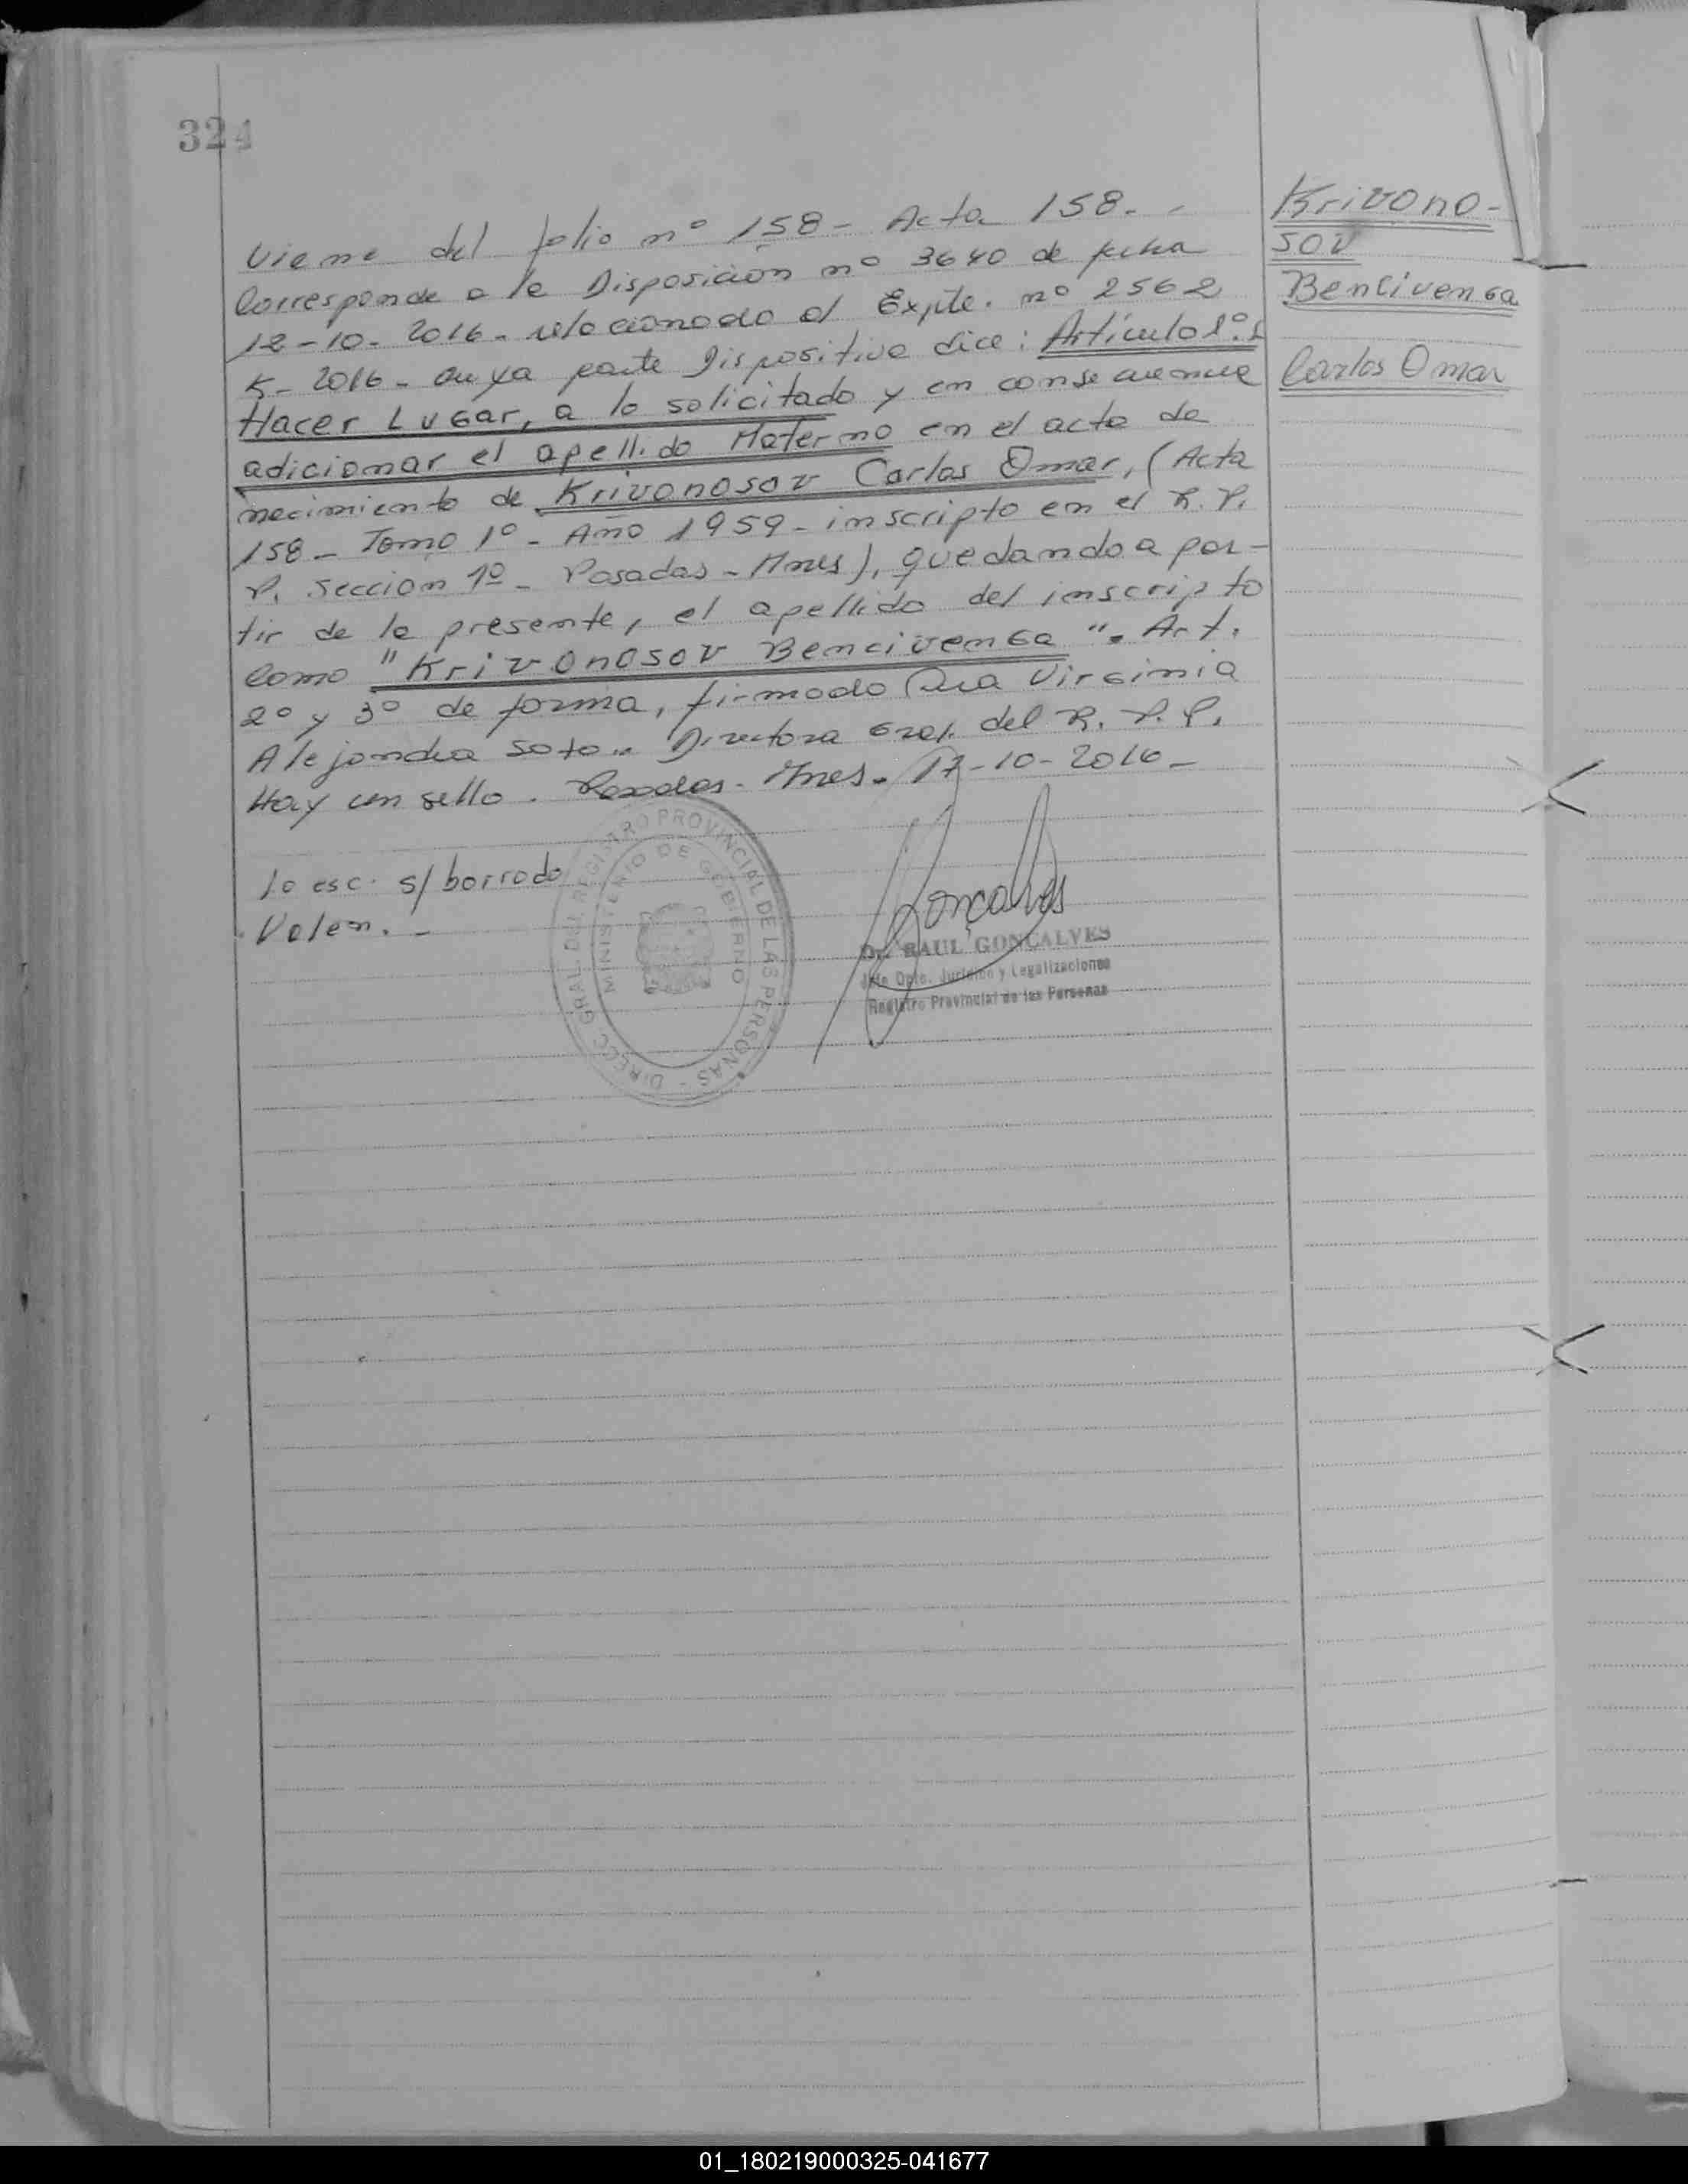 324
Viene del folio nº 158 - Acta 158. -
Corresponde a la Disposición nº 3640 de fecha
12-10-2016 - relacionado al Expte. nº 2562
K-2016 - cuya parte Dispositiva dice: Artículo 1º:
Hacer Lugar, a lo solicitado y en consecuencia
adicionar el apellido Materno en el acta de
nacimiento de Krivonosov Carlos Omar, (Acta
158 - Tomo 1º - Año 1959 - inscripto en el R. P.
P. Sección 1º - Posadas - Mnes), quedando a par-
tir de la presente, el apellido del inscripto
como "Krivonosov Bencivenga". Art.
2º y 3º de forma, firmado Dra Virginia
Alejandra Soto.. Directora Gral. del R. P. P.
Hay un sello. Posadas - Mnes. 17-10-2016 -
lo esc. s/ borrado
Valen. -
Krivono-
sov
Bencivenga
Carlos Omar
DIRECC. GRAL. DEL REGISTRO PROVINCIAL DE LAS PERSONAS -
MINISTERIO DE GOBIERNO
Gonçalves
Dr. RAUL GONCALVES
Jefe Dpto. Jurídico y Legalizaciones
Registro Provincial de las Personas
01_180219000325-041677